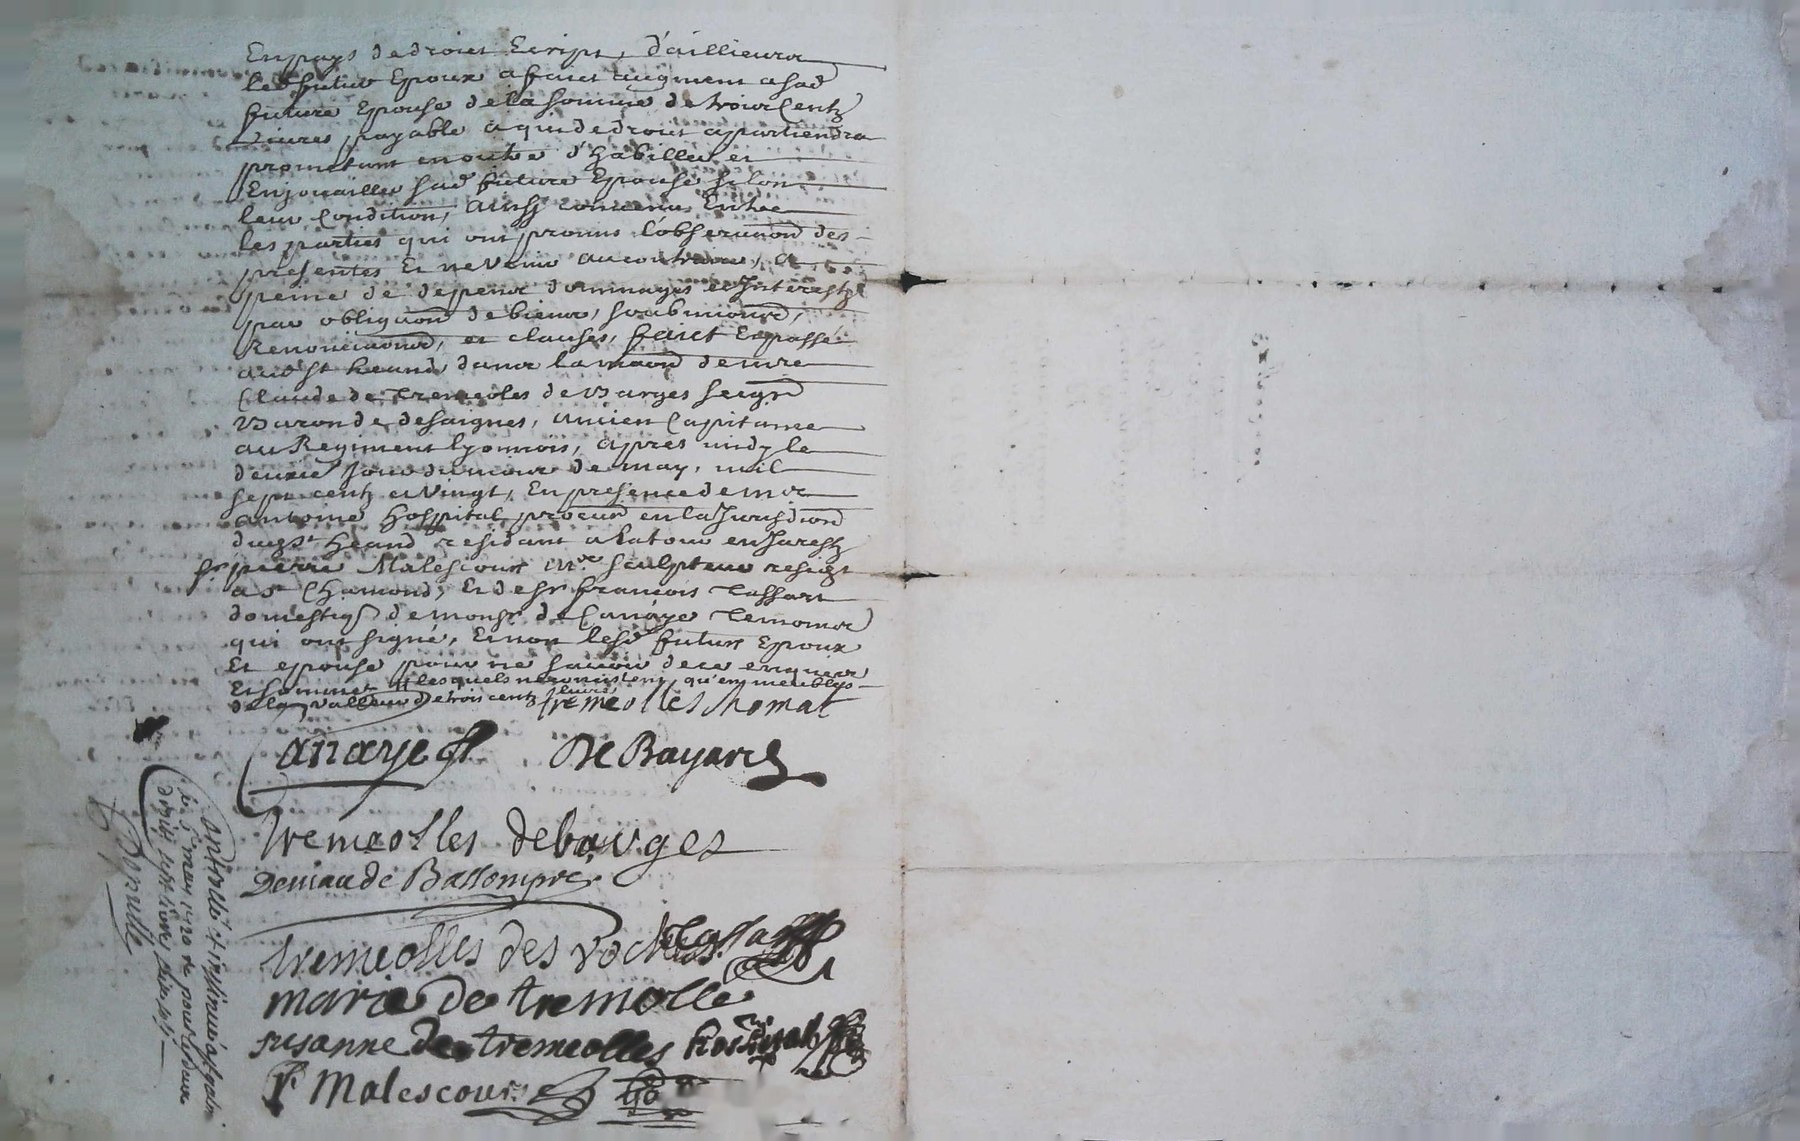 En pays de droict Escript, d'aillieurs
led futur Epoux a faict augment a sad
future Epouse de la somme de trois Centz
Livres payable a qui de droict apartiendra
prometant en outre d'habiller et
Enjouailler sad future Epouse selon
leur Condition, Ainsy convenu Entre
les parties qui ont promis l'observaõn des
presentes Et ne venir au contraire, a
peine de depens dommages et Interestz
par obligaõn de biens, soubmions,
Renonciaõns, et clauses, faict Et passé
aud St heand, dans la maõn de mre
Claude de Tremeoles de Barges seigr
Baron de desaignes, ancien Capitaine
au Regiment lyonnois, apres midy le
deuxie Jour du mois de may, mil
sept centz et vingt, En presence de me
antoine Hospital procur en la Jurisdiõn
dud St Heand residant a Latour en Jarestz
sr pierre Malescour me sculpteur resigt
a St Chamond, Et de sr francois Tassart
domestiq de monsr de Canaye Temoins
qui ont signé, Et non lesd futurs Epoux
Et epouse pour ne sçavoir de ce enquis
Et sommes lesquels ne consistent qu'en meubles
de la valleur de trois centz livres Tremeolles Thomat
Canaye De Bayard
Tremeolles de barges
Bassompre
Tremeolles des roches Tassart
marie de tremolle
susanne de tremeolles hospital
P Malescour
Controllé et insinué a
le 5e may 1720 R pour les deux
droits sept livres dix sols